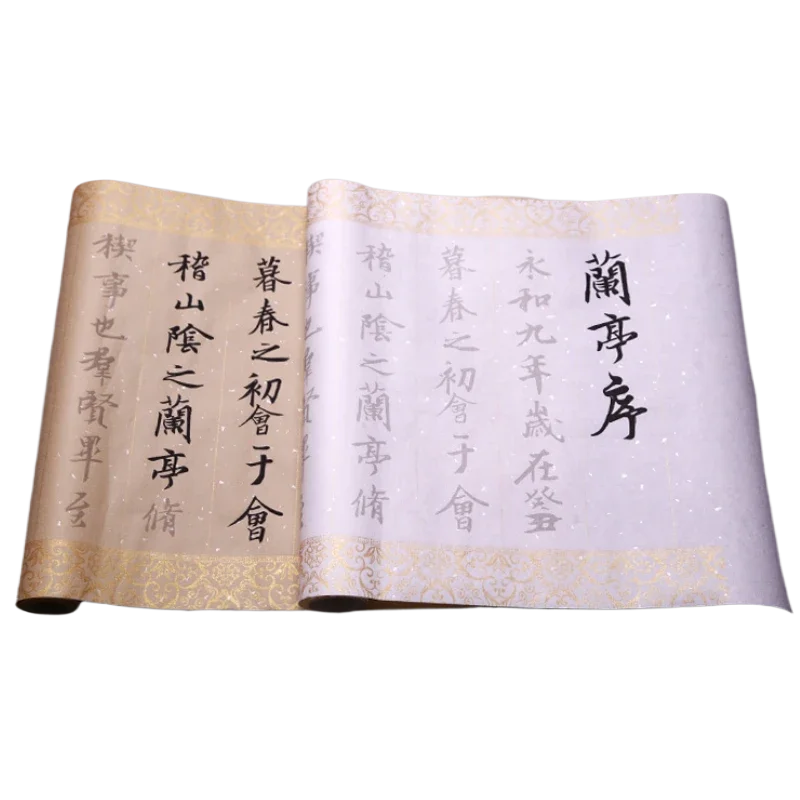 蘭亭序
永和九年歲在癸丑
暮春之初會于會
稽山陰之蘭亭脩
禊事也羣賢畢至
暮春之初會于會
稽山陰之蘭亭脩
禊事也羣賢畢至